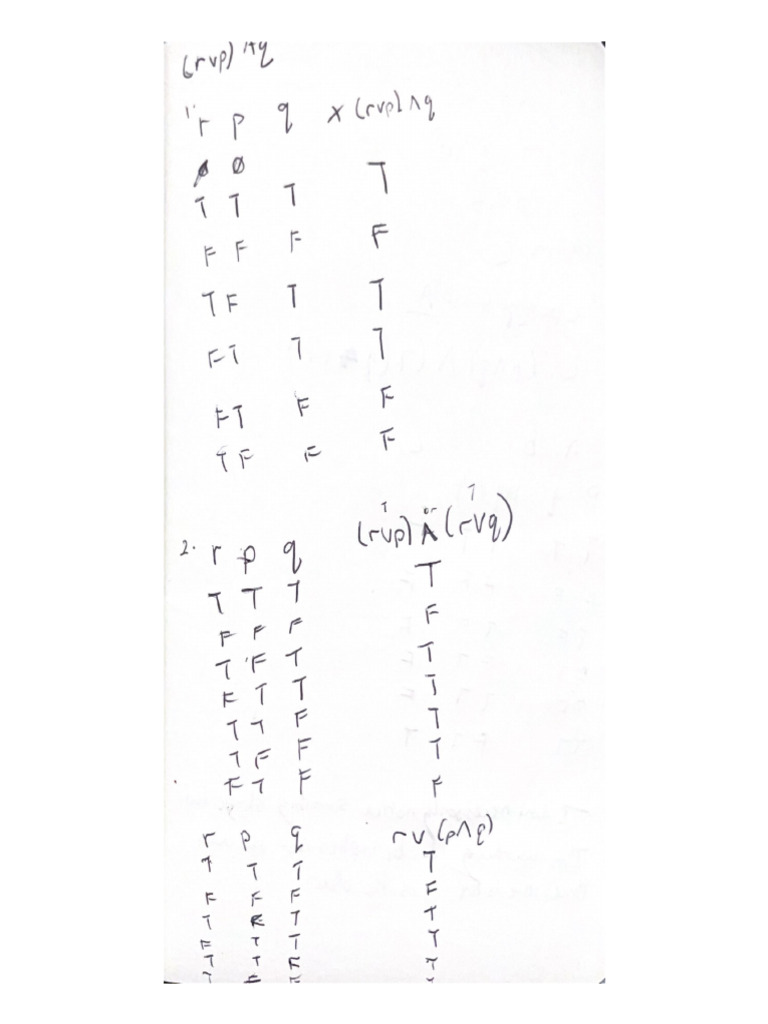 (r∨p) ∧q
1. r p q x (r∨p) ∧ q
T T T T
F F F F
T F T T
F T T T
F T F F
T F F F
T or T
2. r p q (r∨p) ∧ (r∨q)
T T T T
F F F F
T F T T
F T T T
T T F T
T F F T
F T F F
r p q r∨(p∧q)
T T T T
F F F F
T F T T
F T T T
T T F T